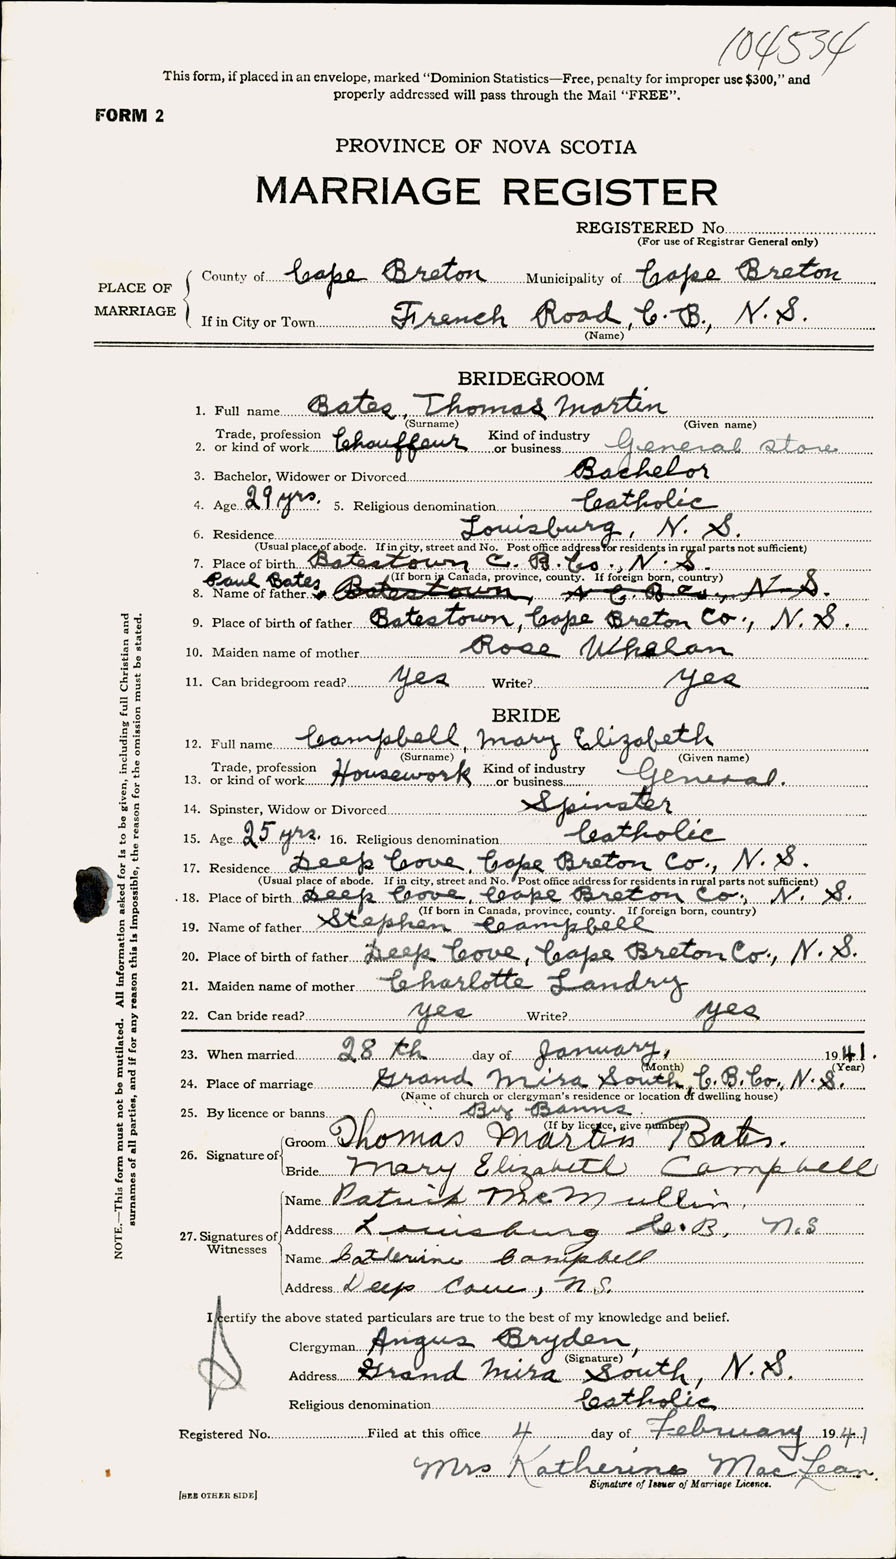 104534
This form, if placed in an envelope, marked “Dominion Statistics—Free, penalty for improper use $300,” and
properly addressed will pass through the Mail “FREE”.
FORM 2
PROVINCE OF NOVA SCOTIA
MARRIAGE REGISTER
REGISTERED No.
(For use of Registrar General only)
PLACE OF MARRIAGE
County of Cape Breton Municipality of Cape Breton
If in City or Town French Road, C. B., N. S.
(Name)
BRIDEGROOM
1. Full name Bates, Thomas Martin
(Surname) (Given name)
2. Trade, profession or kind of work Chauffeur Kind of industry or business General store
3. Bachelor, Widower or Divorced Bachelor
4. Age 29 yrs. 5. Religious denomination Catholic
6. Residence Louisburg, N. S.
(Usual place of abode. If in city, street and No. Post office address for residents in rural parts not sufficient)
7. Place of birth Batestown C. B. Co., N. S.
(If born in Canada, province, county. If foreign born, country)
8. Name of father Paul Bates Batestown, N. S.
9. Place of birth of father Batestown, Cape Breton Co., N. S.
10. Maiden name of mother Rose Whelan
11. Can bridegroom read? yes Write? yes
BRIDE
12. Full name Campbell, Mary Elizabeth
(Surname) (Given name)
13. Trade, profession or kind of work Housework Kind of industry or business General.
14. Spinster, Widow or Divorced Spinster
15. Age 25 yrs. 16. Religious denomination Catholic
17. Residence Deep Cove, Cape Breton Co., N. S.
(Usual place of abode. If in city, street and No. Post office address for residents in rural parts not sufficient)
18. Place of birth Deep Cove, Cape Breton Co., N. S.
(If born in Canada, province, county. If foreign born, country)
19. Name of father Stephen Campbell
20. Place of birth of father Deep Cove, Cape Breton Co., N. S.
21. Maiden name of mother Charlotte Landry
22. Can bride read? yes Write? yes
23. When married 28 th day of January, 1941.
(Month) (Year)
24. Place of marriage Grand Mira South, C. B. Co., N. S.
(Name of church or clergyman's residence or location of dwelling house)
25. By licence or banns By Banns
(If by licence, give number)
26. Signature of
Groom Thomas Martin Bates.
Bride Mary Elizabeth Campbell
27. Signatures of Witnesses
Name Patrick McMullin,
Address Louisburg C. B, N.S
Name Catherine Campbell
Address Deep Cove, N.S.
I certify the above stated particulars are true to the best of my knowledge and belief.
Clergyman Angus Bryden,
(Signature)
Address Grand Mira South, N. S.
Religious denomination Catholic
Registered No. Filed at this office 4 day of February 1941
Mrs Katherine MacLean.
Signature of Issuer of Marriage Licence.
[SEE OTHER SIDE]
NOTE.—This form must not be mutilated. All information asked for is to be given, including full Christian and
surnames of all parties, and if for any reason this is impossible, the reason for the omission must be stated.